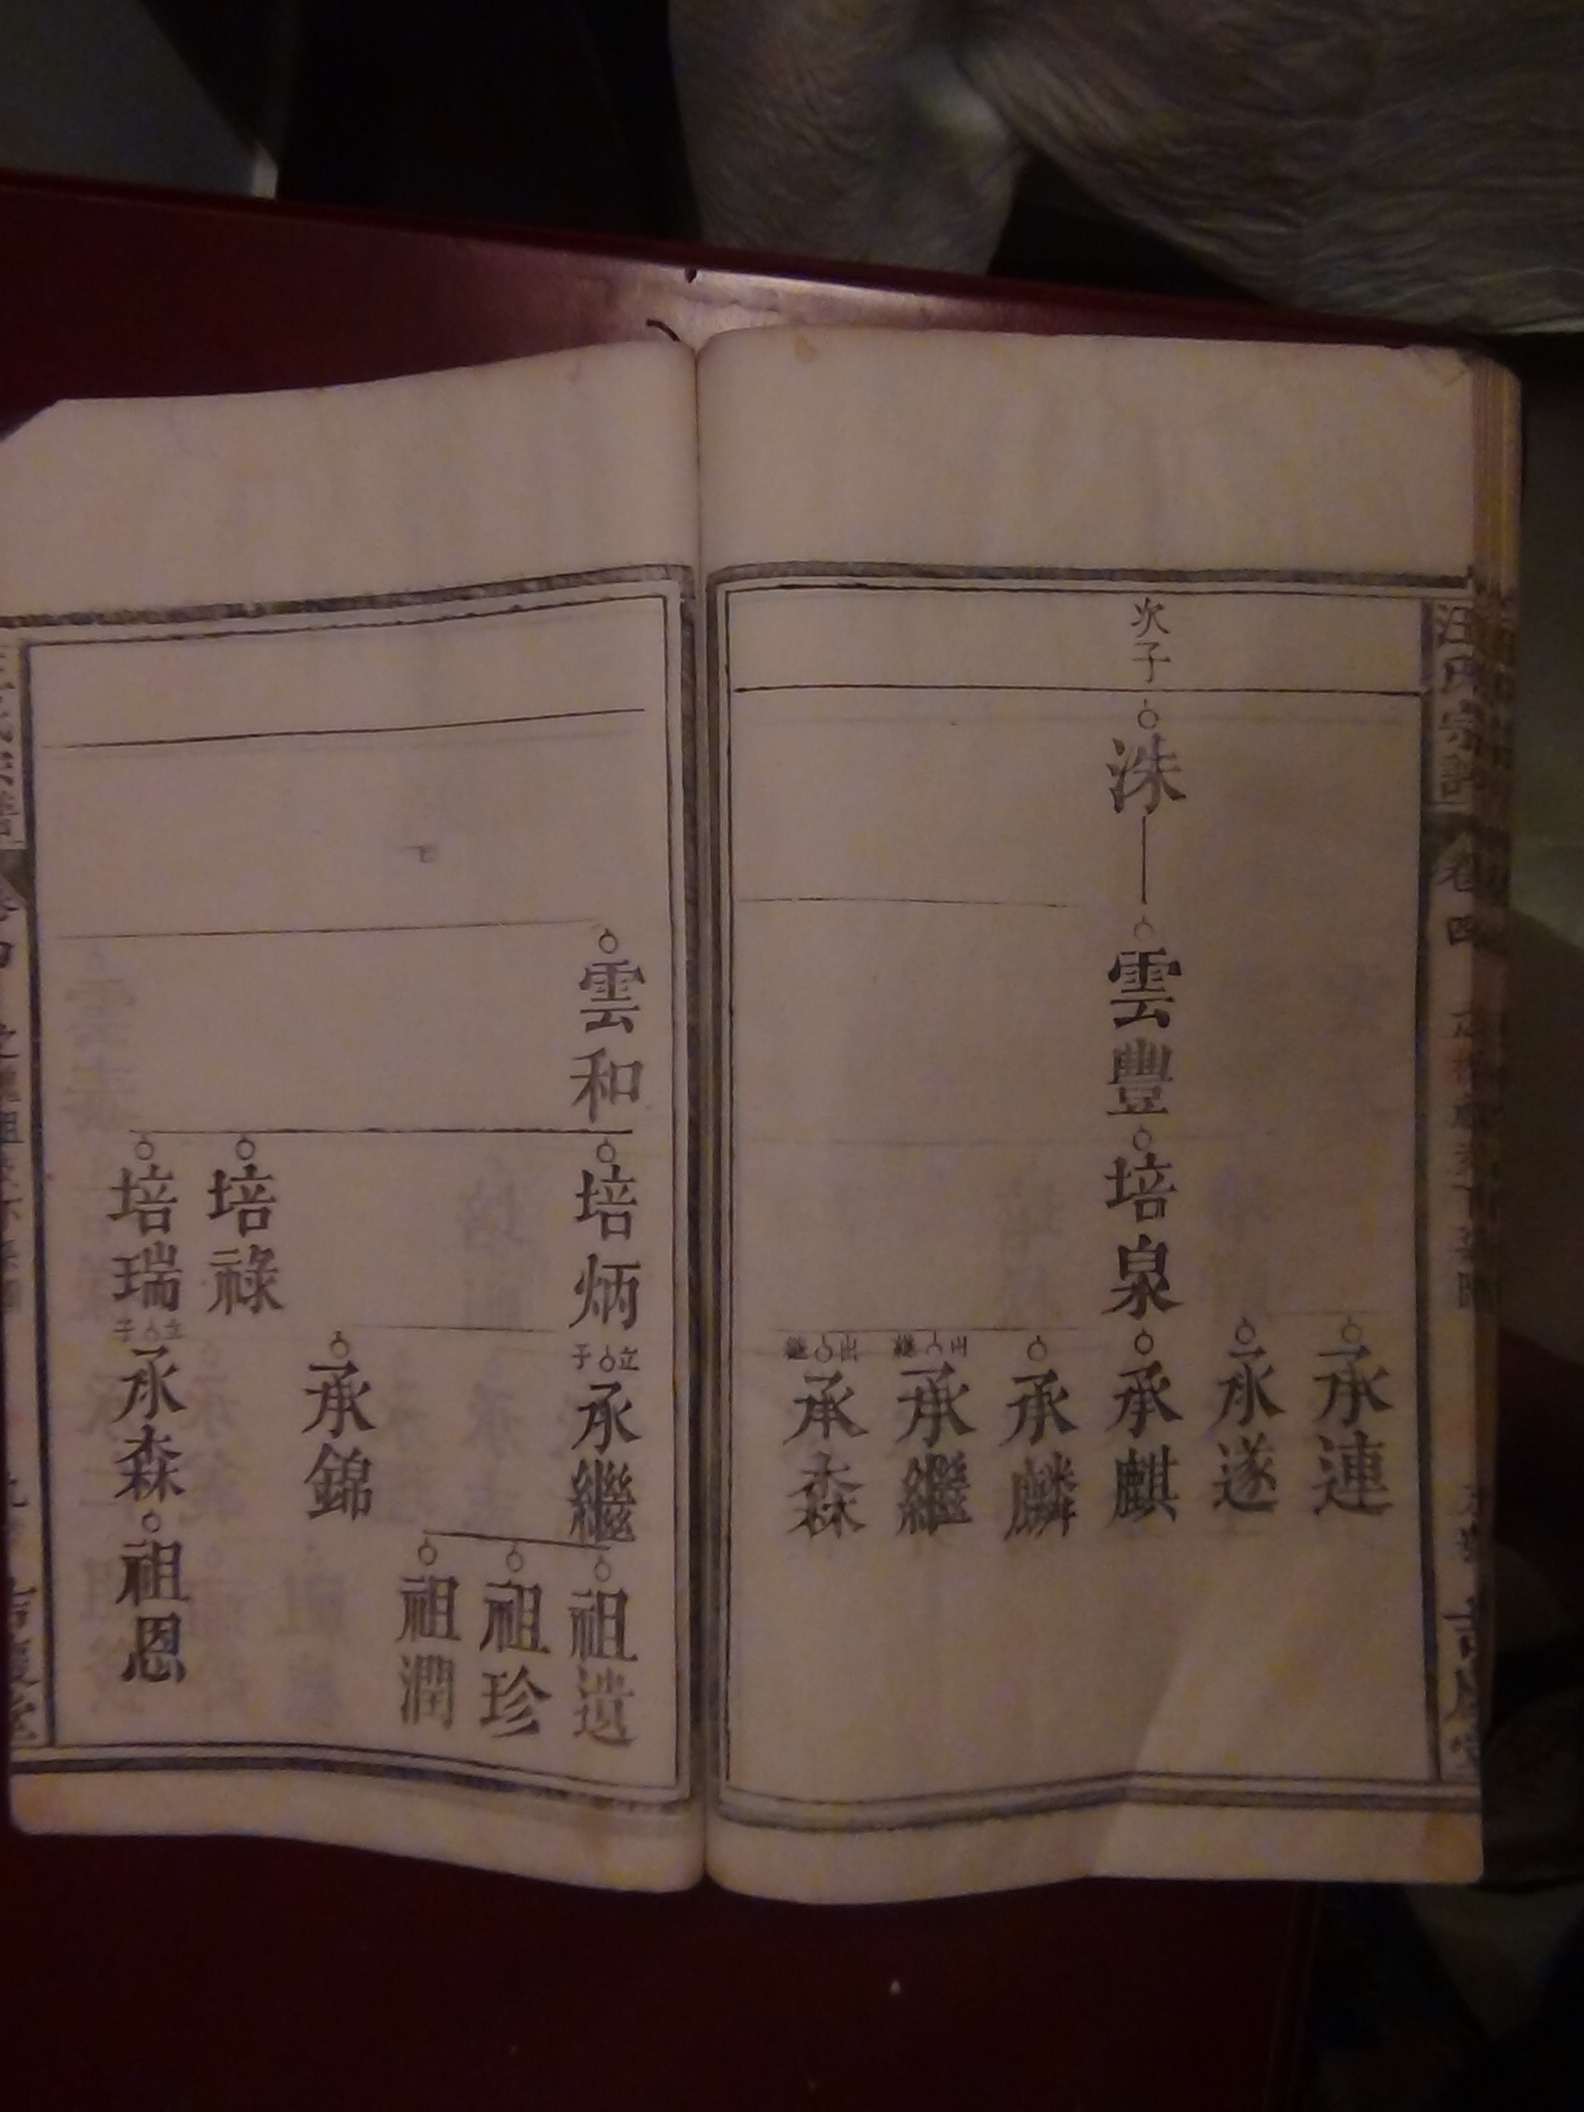 汪氏宗譜
卷四
吉慶堂
次子
洙
雲豐
培泉
承連
承遂
承麒
承麟
出繼
承繼
出繼
承森
雲和
培炳
立子
承繼
祖遺
祖珍
祖潤
承錦
培祿
培瑞
立子
承森
祖恩